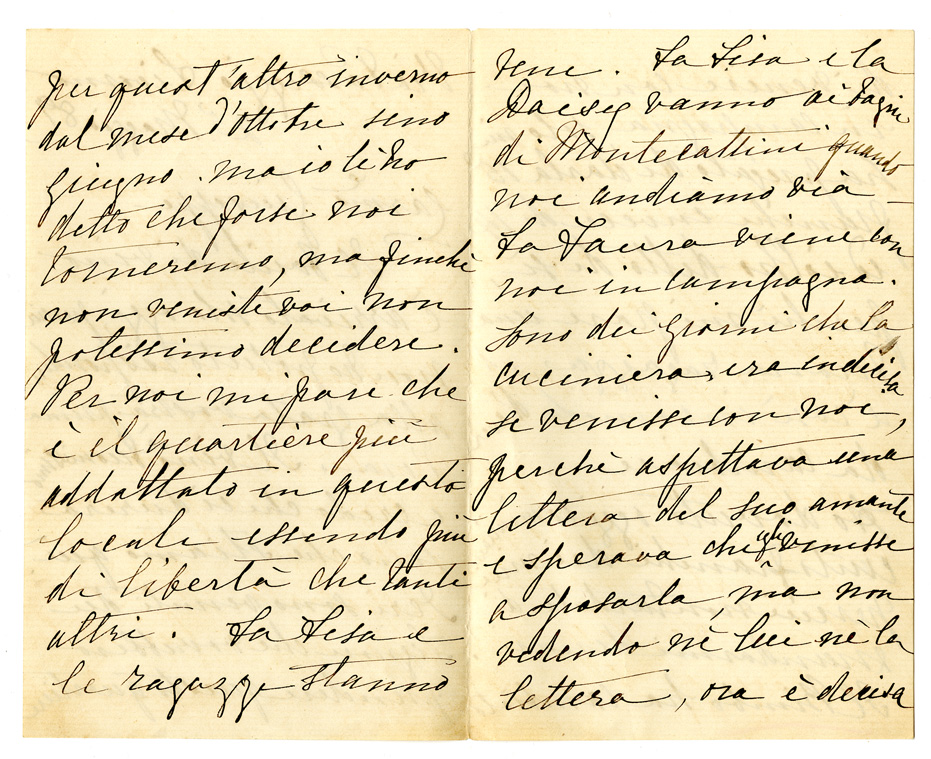 per quest'altro inverno
dal mese d'Ottobre sino
giugno. ma io li ho
detto che forse noi
torneremo, ma finchè
non veniste voi non
potessimo decidere.
Per noi mi pare che
è il quartiere più
addattato in questo
locale essendo più
di libertà che tanti
altri. La Lisa e
le ragazze stanno
bene. La Lisa e la
Daisey vanno ai bagni
di Montecattini quando
noi andiamo via –
La Laura viene con
noi in campagna.
Sono dei giorni che la
cuciniera era indecisa
se venisse con noi,
perchè aspettava una
lettera del suo amante
e sperava che egli venisse
a sposarla, ma non
vedendo nè lui nè la
lettera, ora è decisa